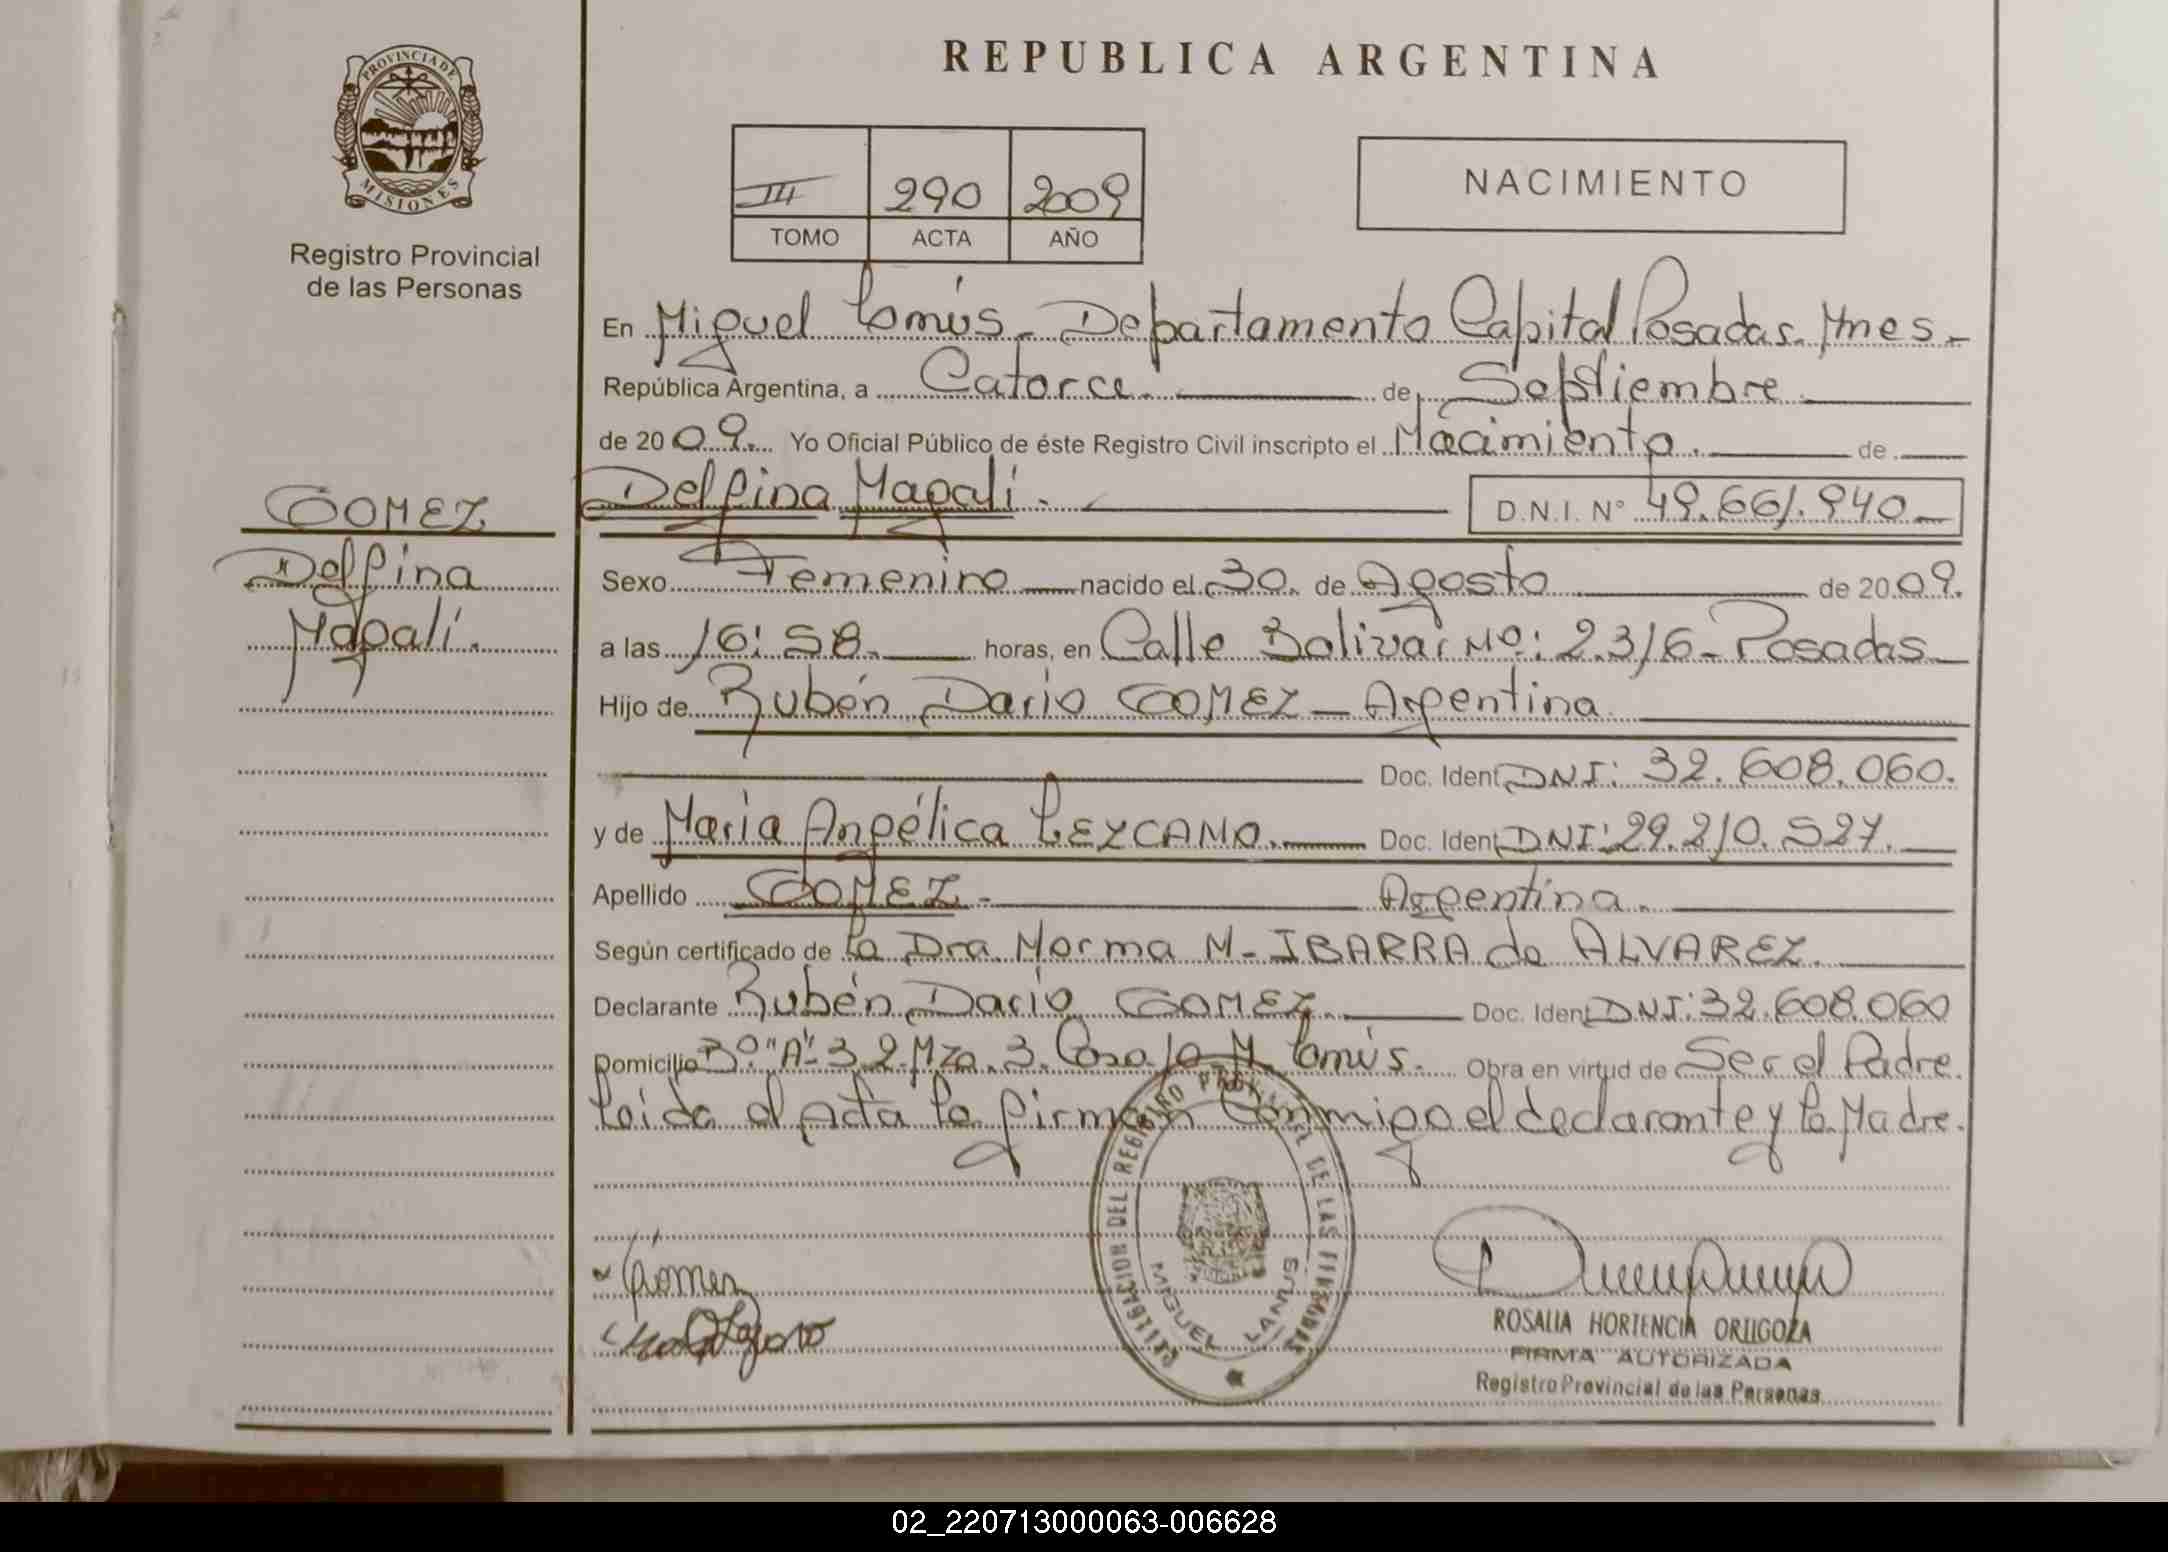 REPUBLICA ARGENTINA
PROVINCIA DE
MISIONES
Registro Provincial
de las Personas
III 290 2009
TOMO ACTA AÑO
NACIMIENTO
En Miguel Lanús - Departamento Capital Posadas. Mnes -
República Argentina, a Catorce. de Septiembre
de 20 09. Yo Oficial Público de éste Registro Civil inscripto el Nacimiento. de
Delfina Magalí. D.N.I. N° 49.661.940
GOMEZ
Delfina
Magalí.
Sexo Femenino nacido el 30. de Agosto de 20 09.
a las 16:58. horas, en Calle Bolivar Nº: 2.316 - Posadas
Hijo de Rubén Dario GOMEZ - Argentina
Doc. Ident DNI: 32.608.060.
y de Maria Angélica LEZCANO. Doc. Ident DNI: 29.210.527.
Apellido GOMEZ - Argentina.
Según certificado de la Dra Norma N - IBARRA de ALVAREZ.
Declarante Rubén Dario GOMEZ. Doc. Ident DNI: 32.608.060
Domicilio 3º "A" 32. Mza. 3. Casa 10 M. Lanús. Obra en virtud de Ser el Padre.
Leida el Acta la firman Conmigo el declarante y la Madre.
DELEGACION DEL REGISTRO PROVINCIAL DE LAS PERSONAS
MIGUEL LANUS
Gomez
ROSALIA HORTENCIA ORTIGOZA
FIRMA AUTORIZADA
Registro Provincial de las Personas
02_220713000063-006628